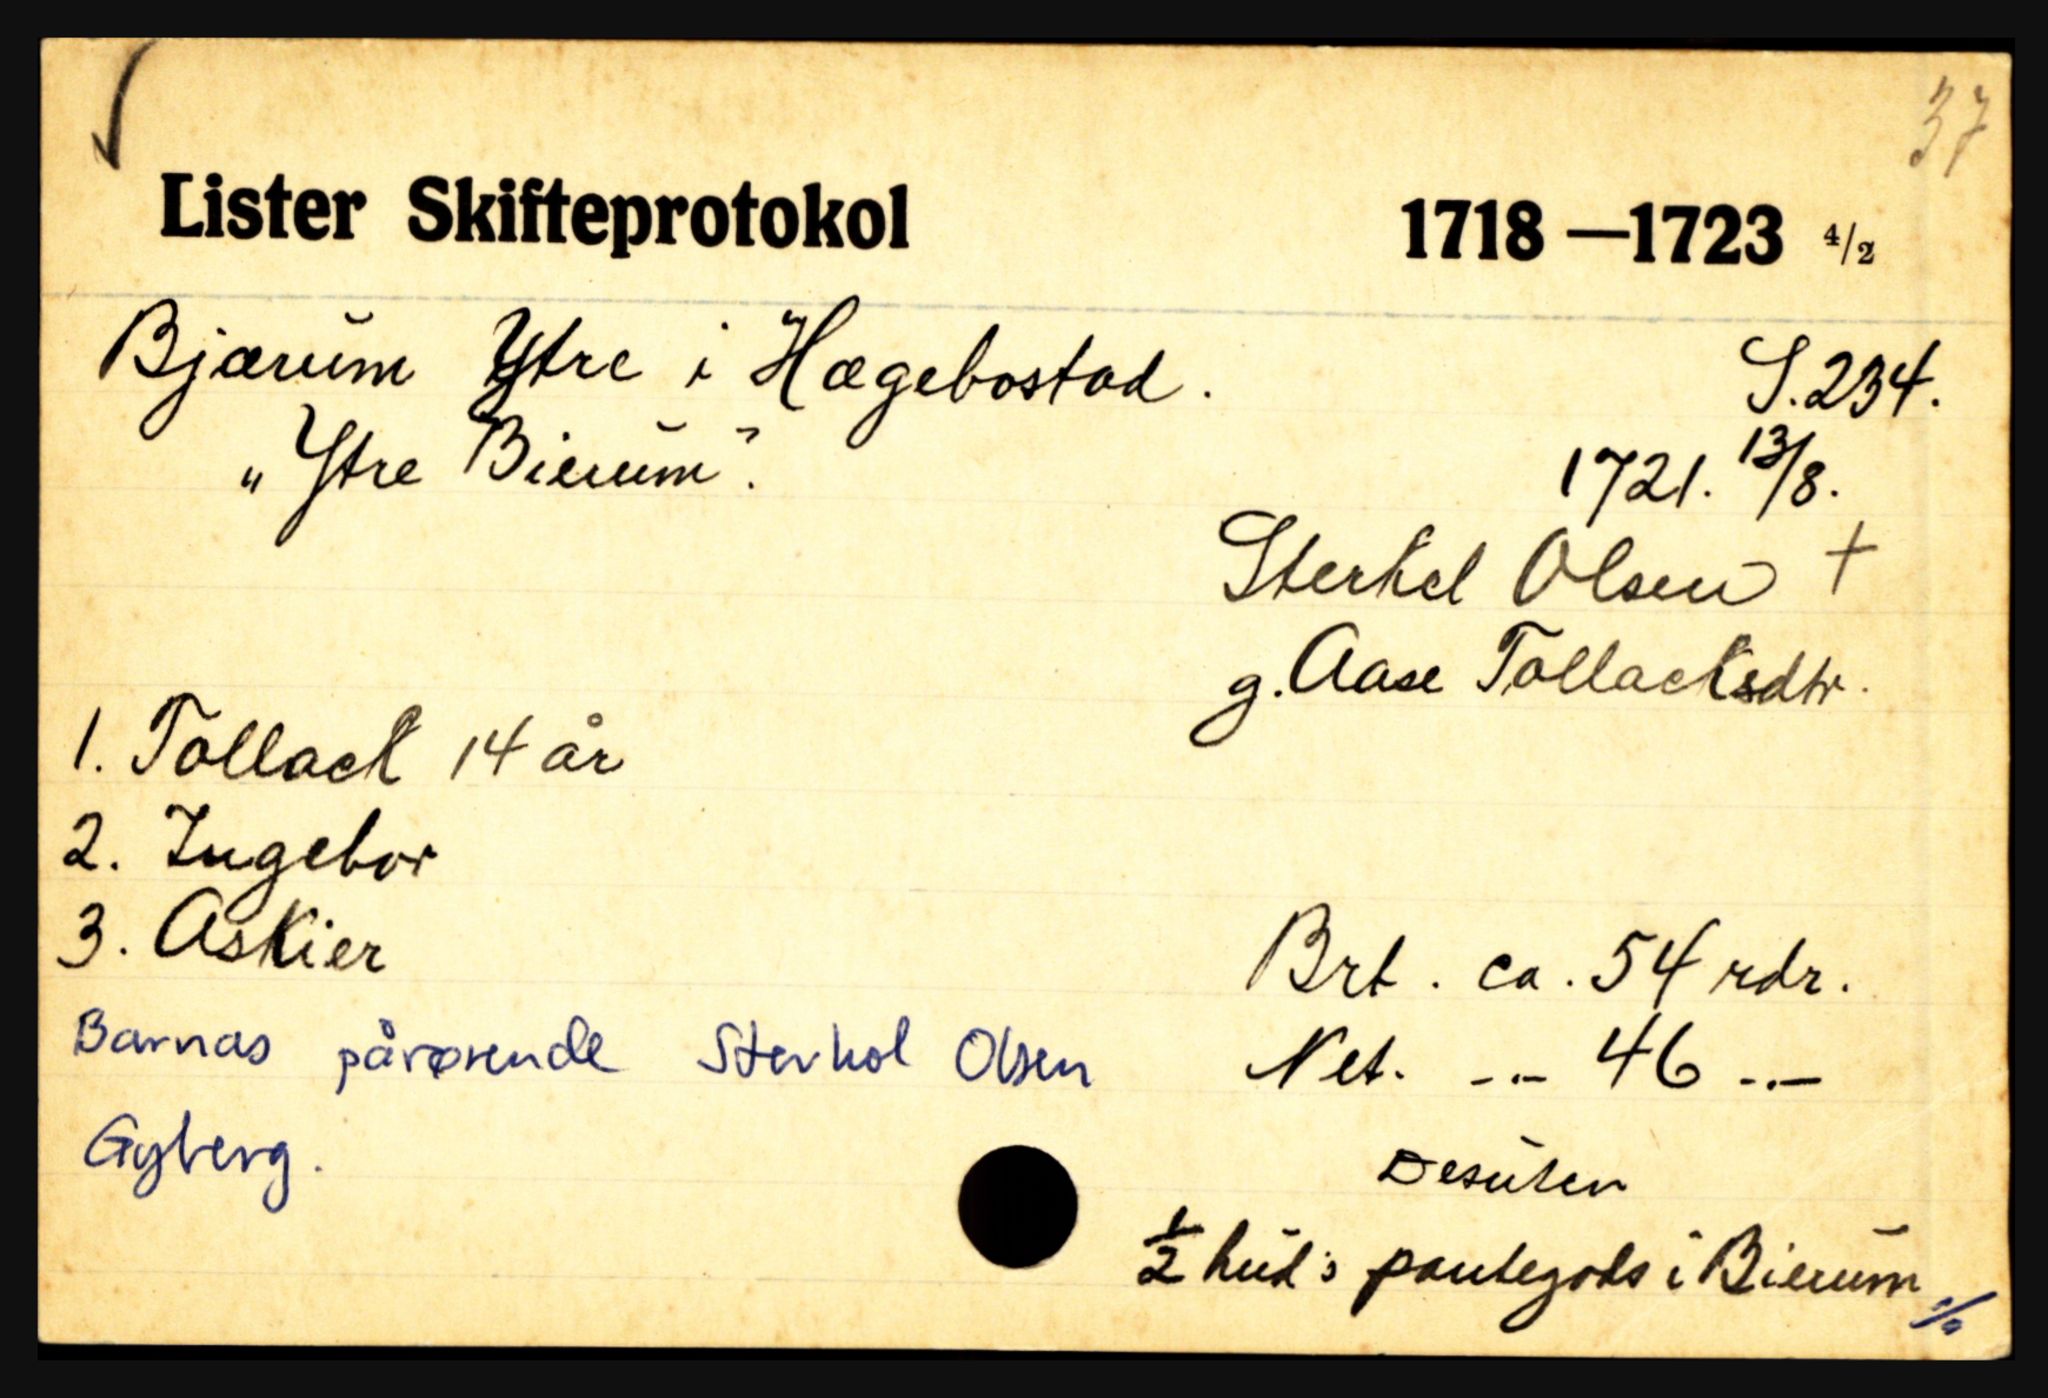 37
Lister Skifteprotokol 1718—1723 4/2
Bjærum Ytre i Hægebostad. S. 234.
„Ytre Bierum”. 1721. 13/8.
Sterkel Olsen +
g. Aase Tollacksdtr.
1. Tollack 14 år
2. Ingebor
3. Askier
Brt. ca. 54 rdr.
Barnas pårørende Sterkol Olsen
Net. -.- 46 -.-
Gyberg.
Desuten
1/2 huds pantegods i Bierum